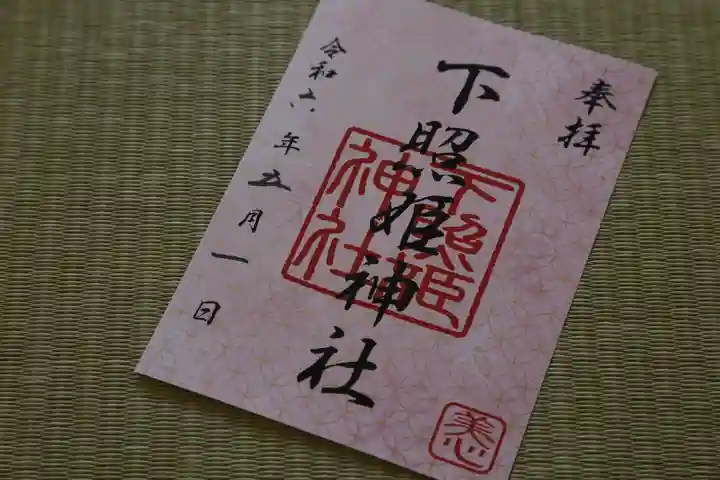 奉拝
下照姫神社
下照姫
神社
令和六年五月一日
美心